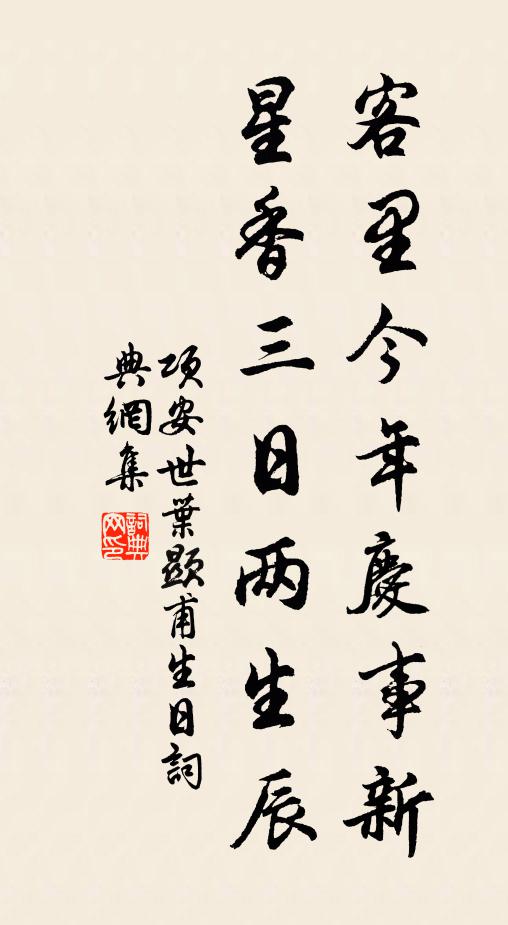 客里今年慶事新
星香三日两生辰
項安世葉顯甫生日詞
典網集
詞典
网印